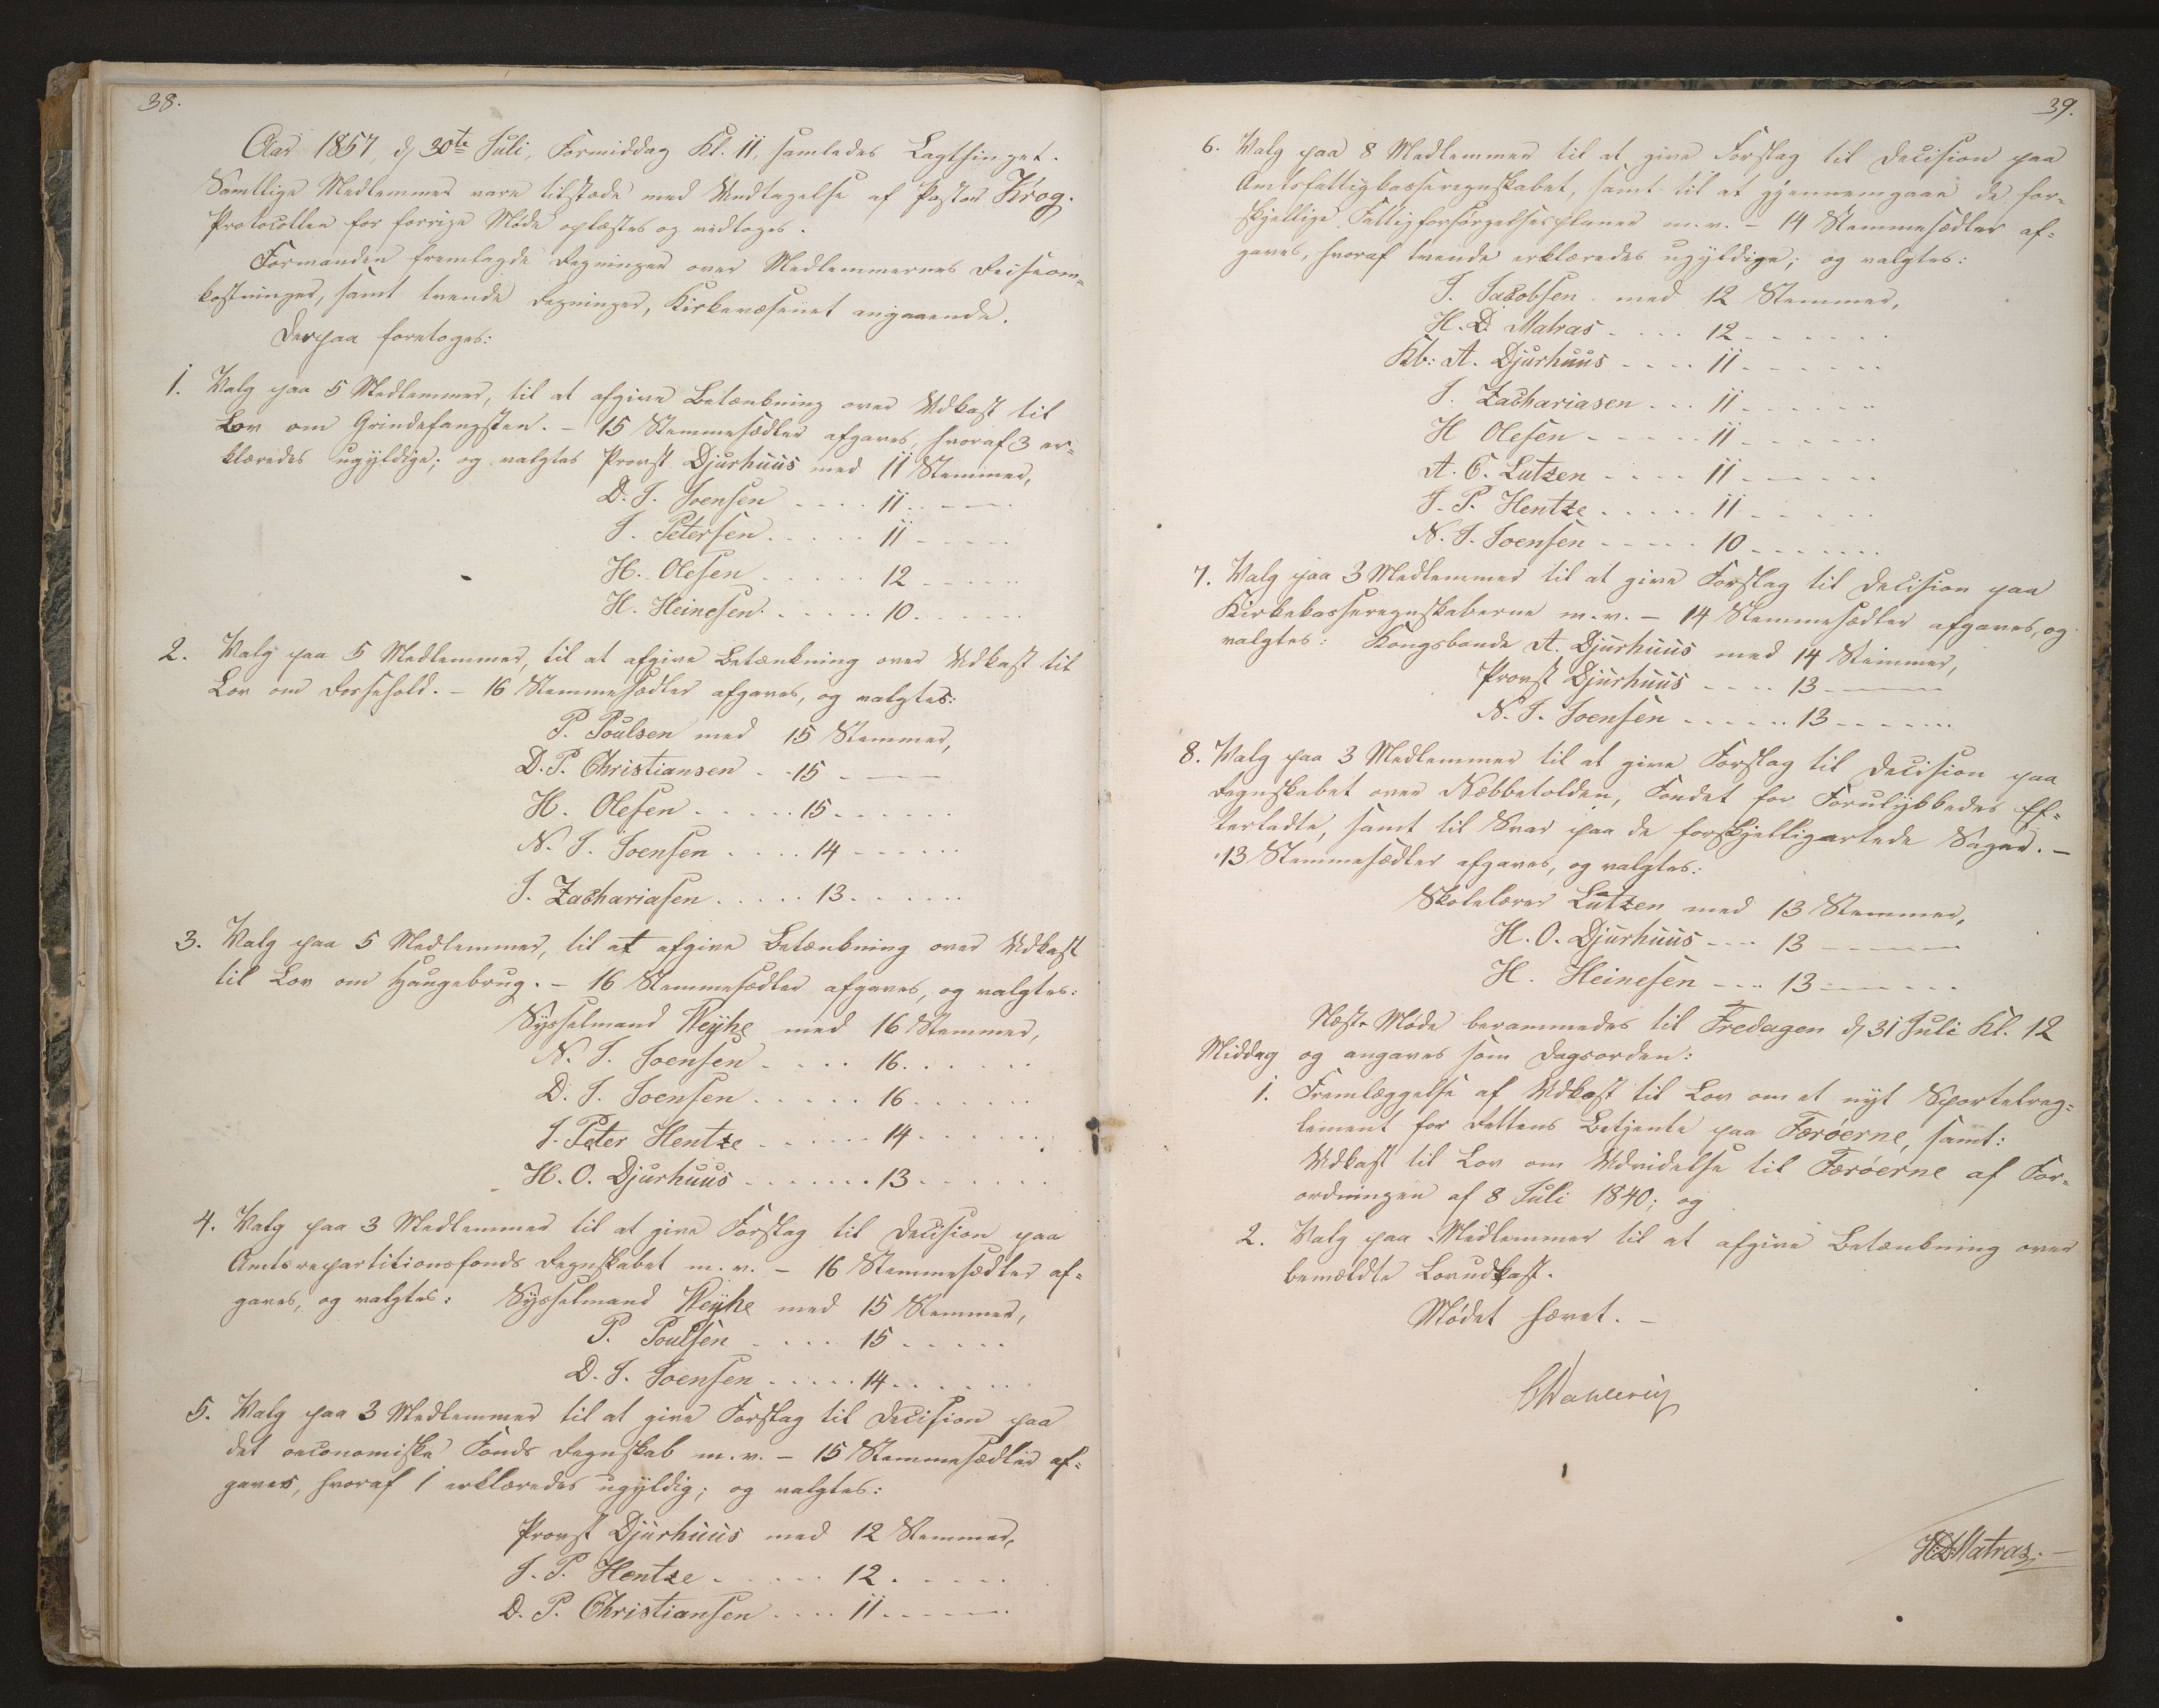 38.
Aar 1857, d/ 30te Juli, Formiddag Kl. 11, samledes Lagthinget.
Samtlige Medlemmer vare tilstæde med Undtagelse af Pastor Krog.
Protocollen for forrige Møde oplæstes og vedtoges.
Formanden fremlagde Regninger over Medlemmernes Reiseom=
kostninger, samt tvende Regninger, Kirkevæsenet angaaende.
Derpaa foretoges:
1. Valg paa 5 Medlemmer, til at afgive Betænkning over Udkast til
Lov om Grindefangsten. – 15 Stemmesedler afgaves, hvoraf 3 er=
klæredes ugyldige; og valgtes Provst Djurhuus med 11 Stemmer,
D. J. Joensen .... 11 ....
J. Petersen ..... 11 .....
H. Olesen ..... 12 .....
H. Heinesen ..... 10 .....
2. Valg paa 5 Medlemmer, til at afgive Betænkning over Udkast til
Lov om Fossehold. – 16 Stemmesedler afgaves, og valgtes:
P. Poulsen med 15 Stemmer,
D. P. Christiansen .. 15 ....
H. Olesen ..... 15 ......
N. J. Joensen .... 14 ......
J. Zachariasen ..... 13 ......
3. Valg paa 5 Medlemmer, til at afgive Betænkning over Udkast
til Lov om Haugebrug. – 16 Stemmesedler afgaves, og valgtes:
Sysselmand Weyhe med 16 Stemmer,
N. J. Joensen .... 16 ......
D. J. Joensen ..... 16 ......
J. Peter Hentze ...... 14 ......
H. O. Djurhuus ....... 13 ......
4. Valg paa 3 Medlemmer til at give Forslag til Decision paa
Amtsrepartitionsfonds Regnskabet m. v. – 16 Stemmesedler af=
gaves, og valgtes: Sysselmand Weyhe med 15 Stemmer,
P. Poulsen .... 15 .....
D. J. Joensen ..... 14 ......
5. Valg paa 3 Medlemmer til at give Forslag til Decision paa
det oeconomiske Fonds Regnskab m. v. – 15 Stemmesedler af=
gaves, hvoraf 1 erklæredes ugyldig; og valgtes:
Provst Djurhuus med 12 Stemmer,
J. P. Hentze ..... 12 .....
D. P. Christiansen .... 11 .....
39.
6. Valg paa 8 Medlemmer til at give Forslag til Decision paa
Amtsfattigkasseregnskabet, samt til at gjennemgaae de for=
skjellige Fattigforsørgelsesplaner m. v. – 14 Stemmesedler af=
gaves, hvoraf tvende erklæredes ugyldige; og valgtes:
J. Jacobsen med 12 Stemmer,
H. D. Matras .... 12 ......
Kb: A. Djurhuus .... 11 ......
J. Zachariasen ... 11 ......
H Olesen ..... 11 ......
A. C. Lutzen .... 11 ......
J. P. Hentze ..... 11 ......
N. J. Joensen ..... 10 .......
7. Valg paa 3 Medlemmer til at give Forslag til Decision paa
Kirkekasseregnskaberne m. v. – 14 Stemmesedler afgaves, og
valgtes: Kongsbonde A. Djurhuus med 14 Stemmer,
Provst Djurhuus .... 13 ......
N. J. Joensen ...... 13 .......
8. Valg paa 3 Medlemmer til at give Forslag til Decision paa
Regnskabet over Næbbetolden, Fondet for Forulykkedes Ef=
terladte, samt til Svar paa de forskjelligartede Sager. –
13 Stemmesedler afgaves, og valgtes:
Skolelærer Lützen med 13 Stemmer,
H. O. Djurhuus .... 13 ......
H. Heinesen ... 13 ......
Næste Møde berammedes til Fredagen d/ 31 Juli Kl. 12
Middag og angaves som Dagsorden:
1. Fremlæggelse af Udkast til Lov om et nyt Sportelreg=
lement for Rettens Betjente paa Færøerne, samt:
Udkast til Lov om Udvidelse til Færøerne af For=
ordningen af 8 Juli 1840; og
2. Valg paa Medlemmer til at afgive Betænkning over
bemældte Lovudkast.
Mødet hævet. –
CDahlerup
H.D. Matras. –